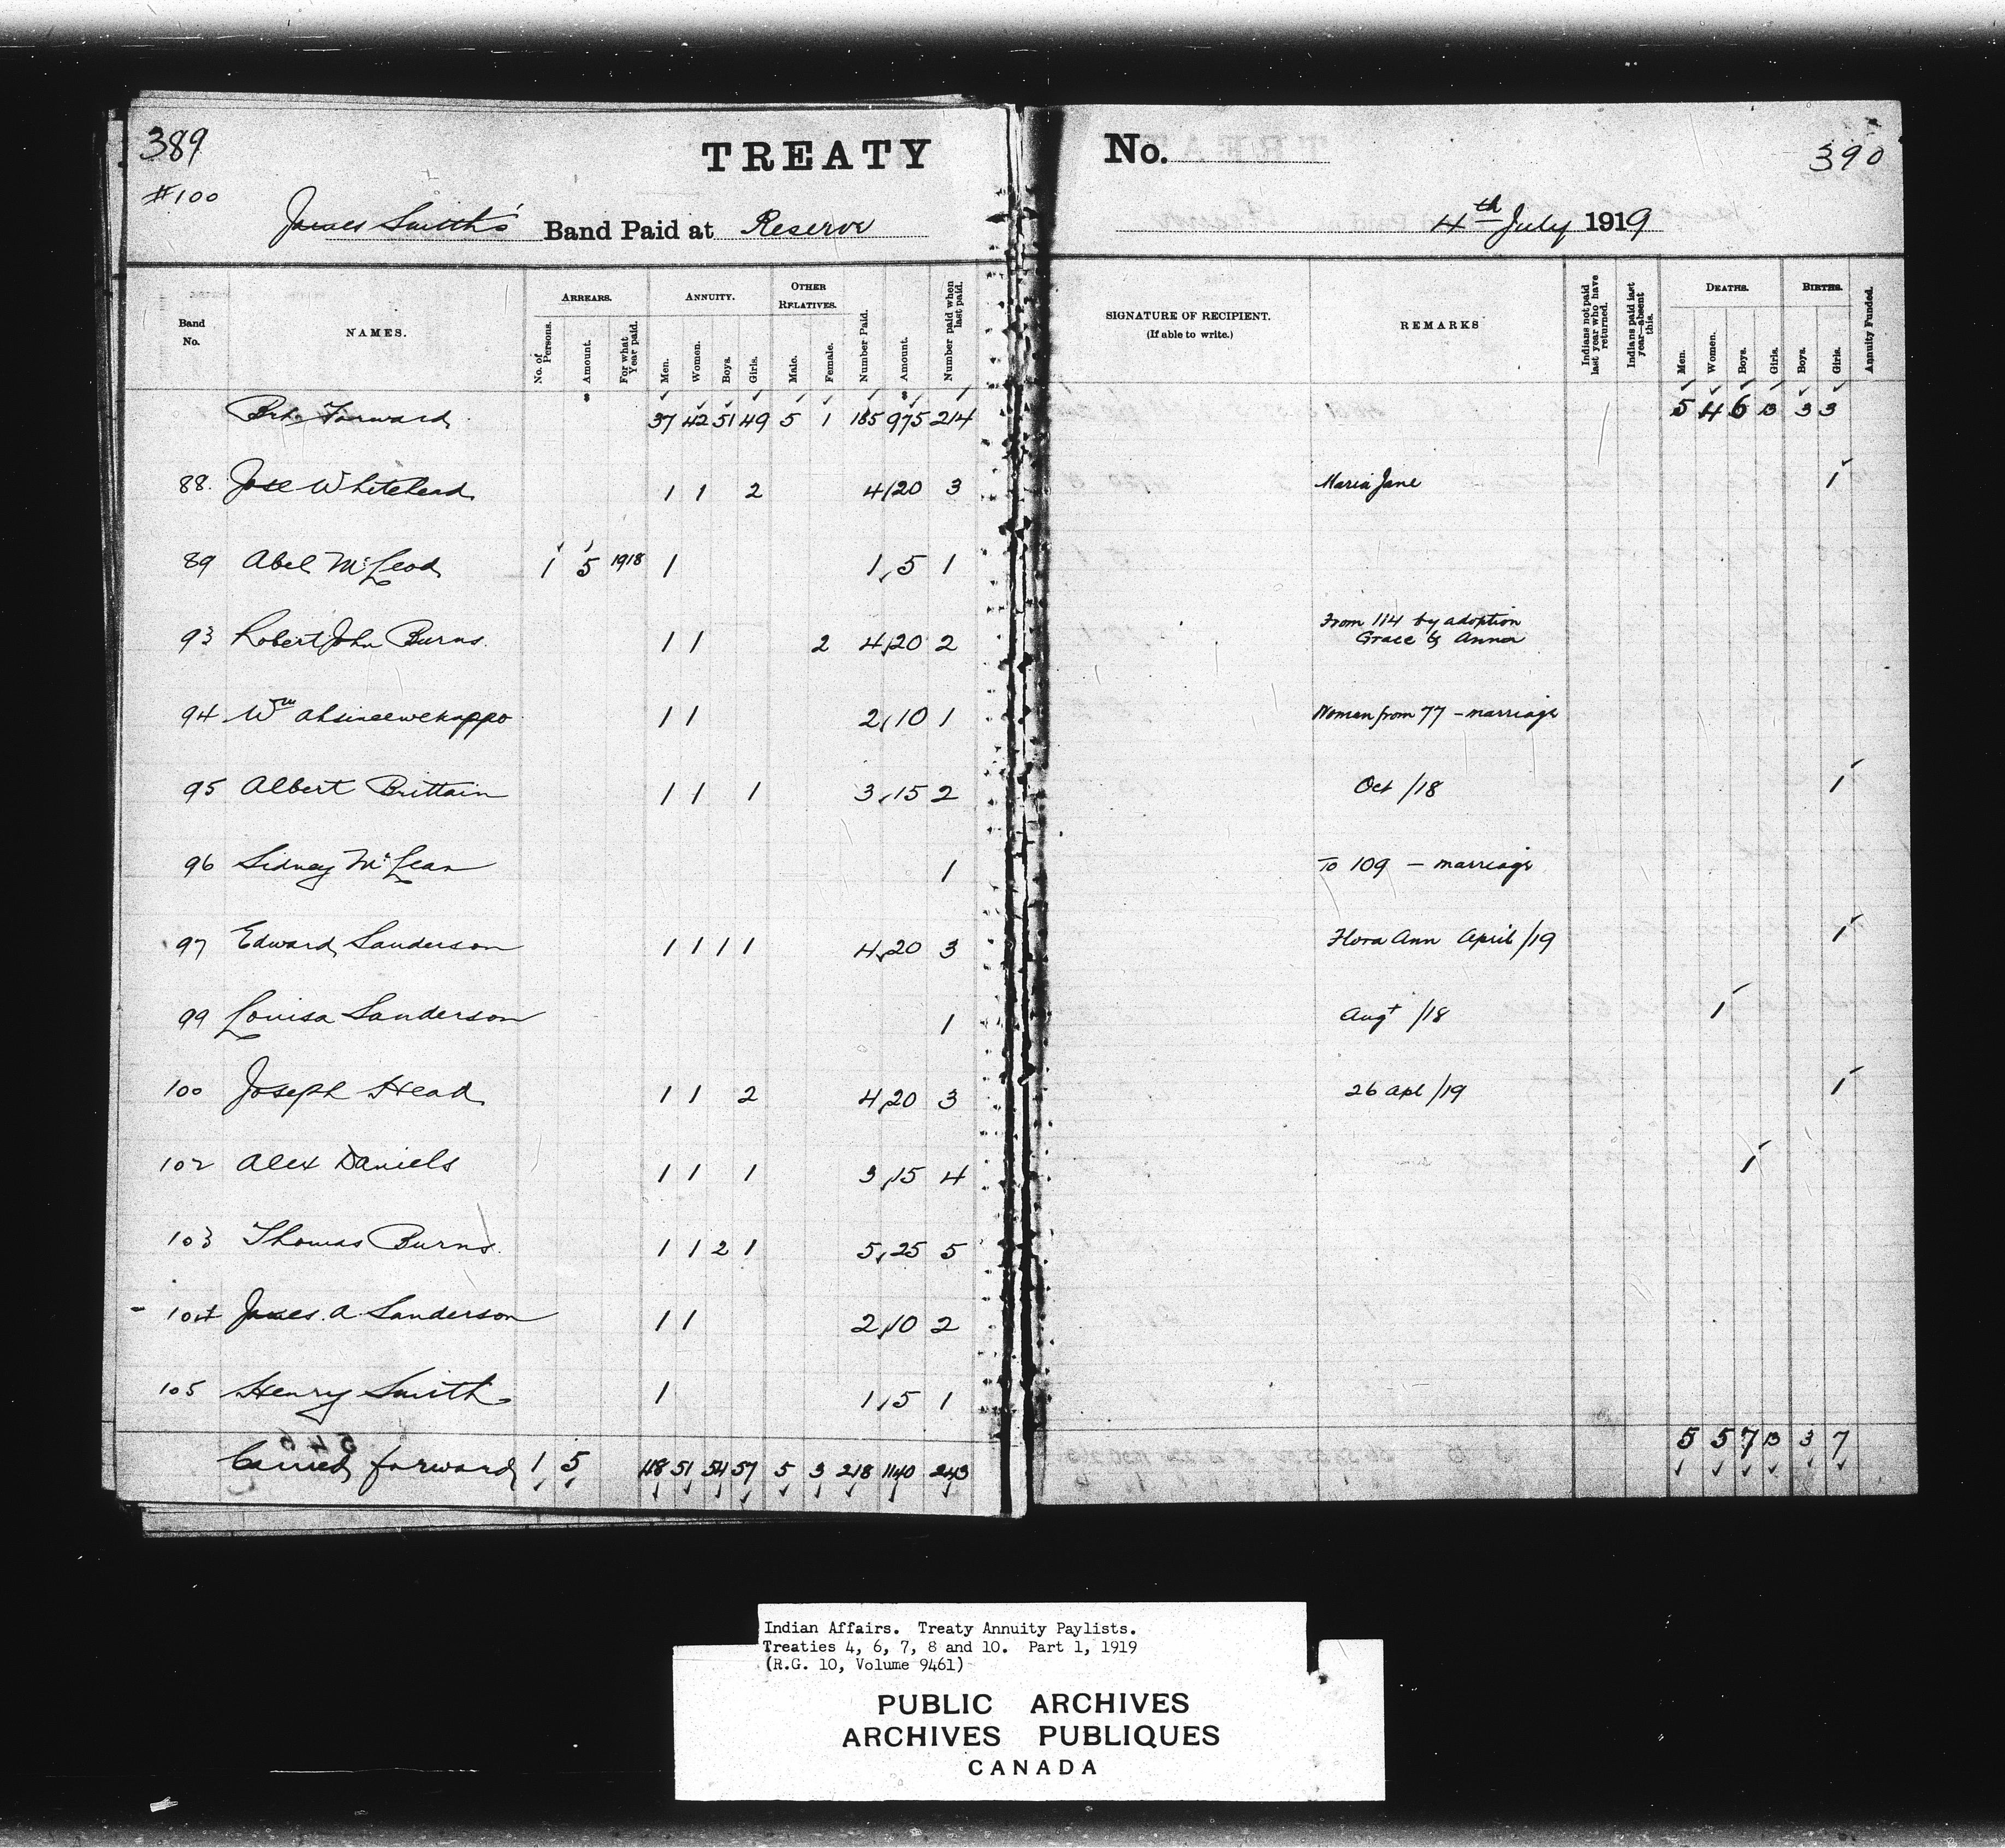 389
TREATY
No.
390
#100
James Smith's Band Paid at Reserve
4th July 1919
Band No. NAMES. ARREARS. ANNUITY. OTHER RELATIVES. Number Paid. Amount. Number paid when last paid. SIGNATURE OF RECIPIENT. (If able to write.) REMARKS Indians not paid last year who have returned. Indians paid last year—absent this. DEATHS. BIRTHS. Annuity Funded.
No. of Persons. Amount. For what Year paid. Men. Women. Boys. Girls. Male. Female. Men. Women. Boys. Girls. Boys. Girls.
Brt. Forward 37 42 51 49 5 1 185 975 214 5 4 6 13 3 3
88. Jose Whitehead 1 1 2 4 20 3 Maria Jane 1
89 Abel McLeod 1 5 1918 1 1 5 1
93 Robert John Burns. 1 1 2 4 20 2 From 114 by adoption
Grace & Anna
94 Wm Ahsineewekappo 1 1 2 10 1 Woman from 77 - marriage
95 Albert Brittain 1 1 1 3 15 2 Oct /18 1
96 Sidney McLean 1 To 109 - marriage
97 Edward Sanderson 1 1 1 1 4 20 3 Flora Ann April /19 1
99 Louisa Sanderson 1 Augt /18 1
100 Joseph Head 1 1 2 4 20 3 26 Apl /19 1
102 Alex Daniels 1 1 1 3 15 4 1
103 Thomas Burns. 1 1 2 1 5 25 5
104 James. A. Sanderson 1 1 2 10 2
105 Henry Smith 1 1 5 1
Carried forward 1 5 48 51 54 57 5 3 218 1140 243 5 5 7 13 3 7
Indian Affairs. Treaty Annuity Paylists.
Treaties 4, 6, 7, 8 and 10. Part 1, 1919
(R.G. 10, Volume 9461)
PUBLIC ARCHIVES
ARCHIVES PUBLIQUES
CANADA